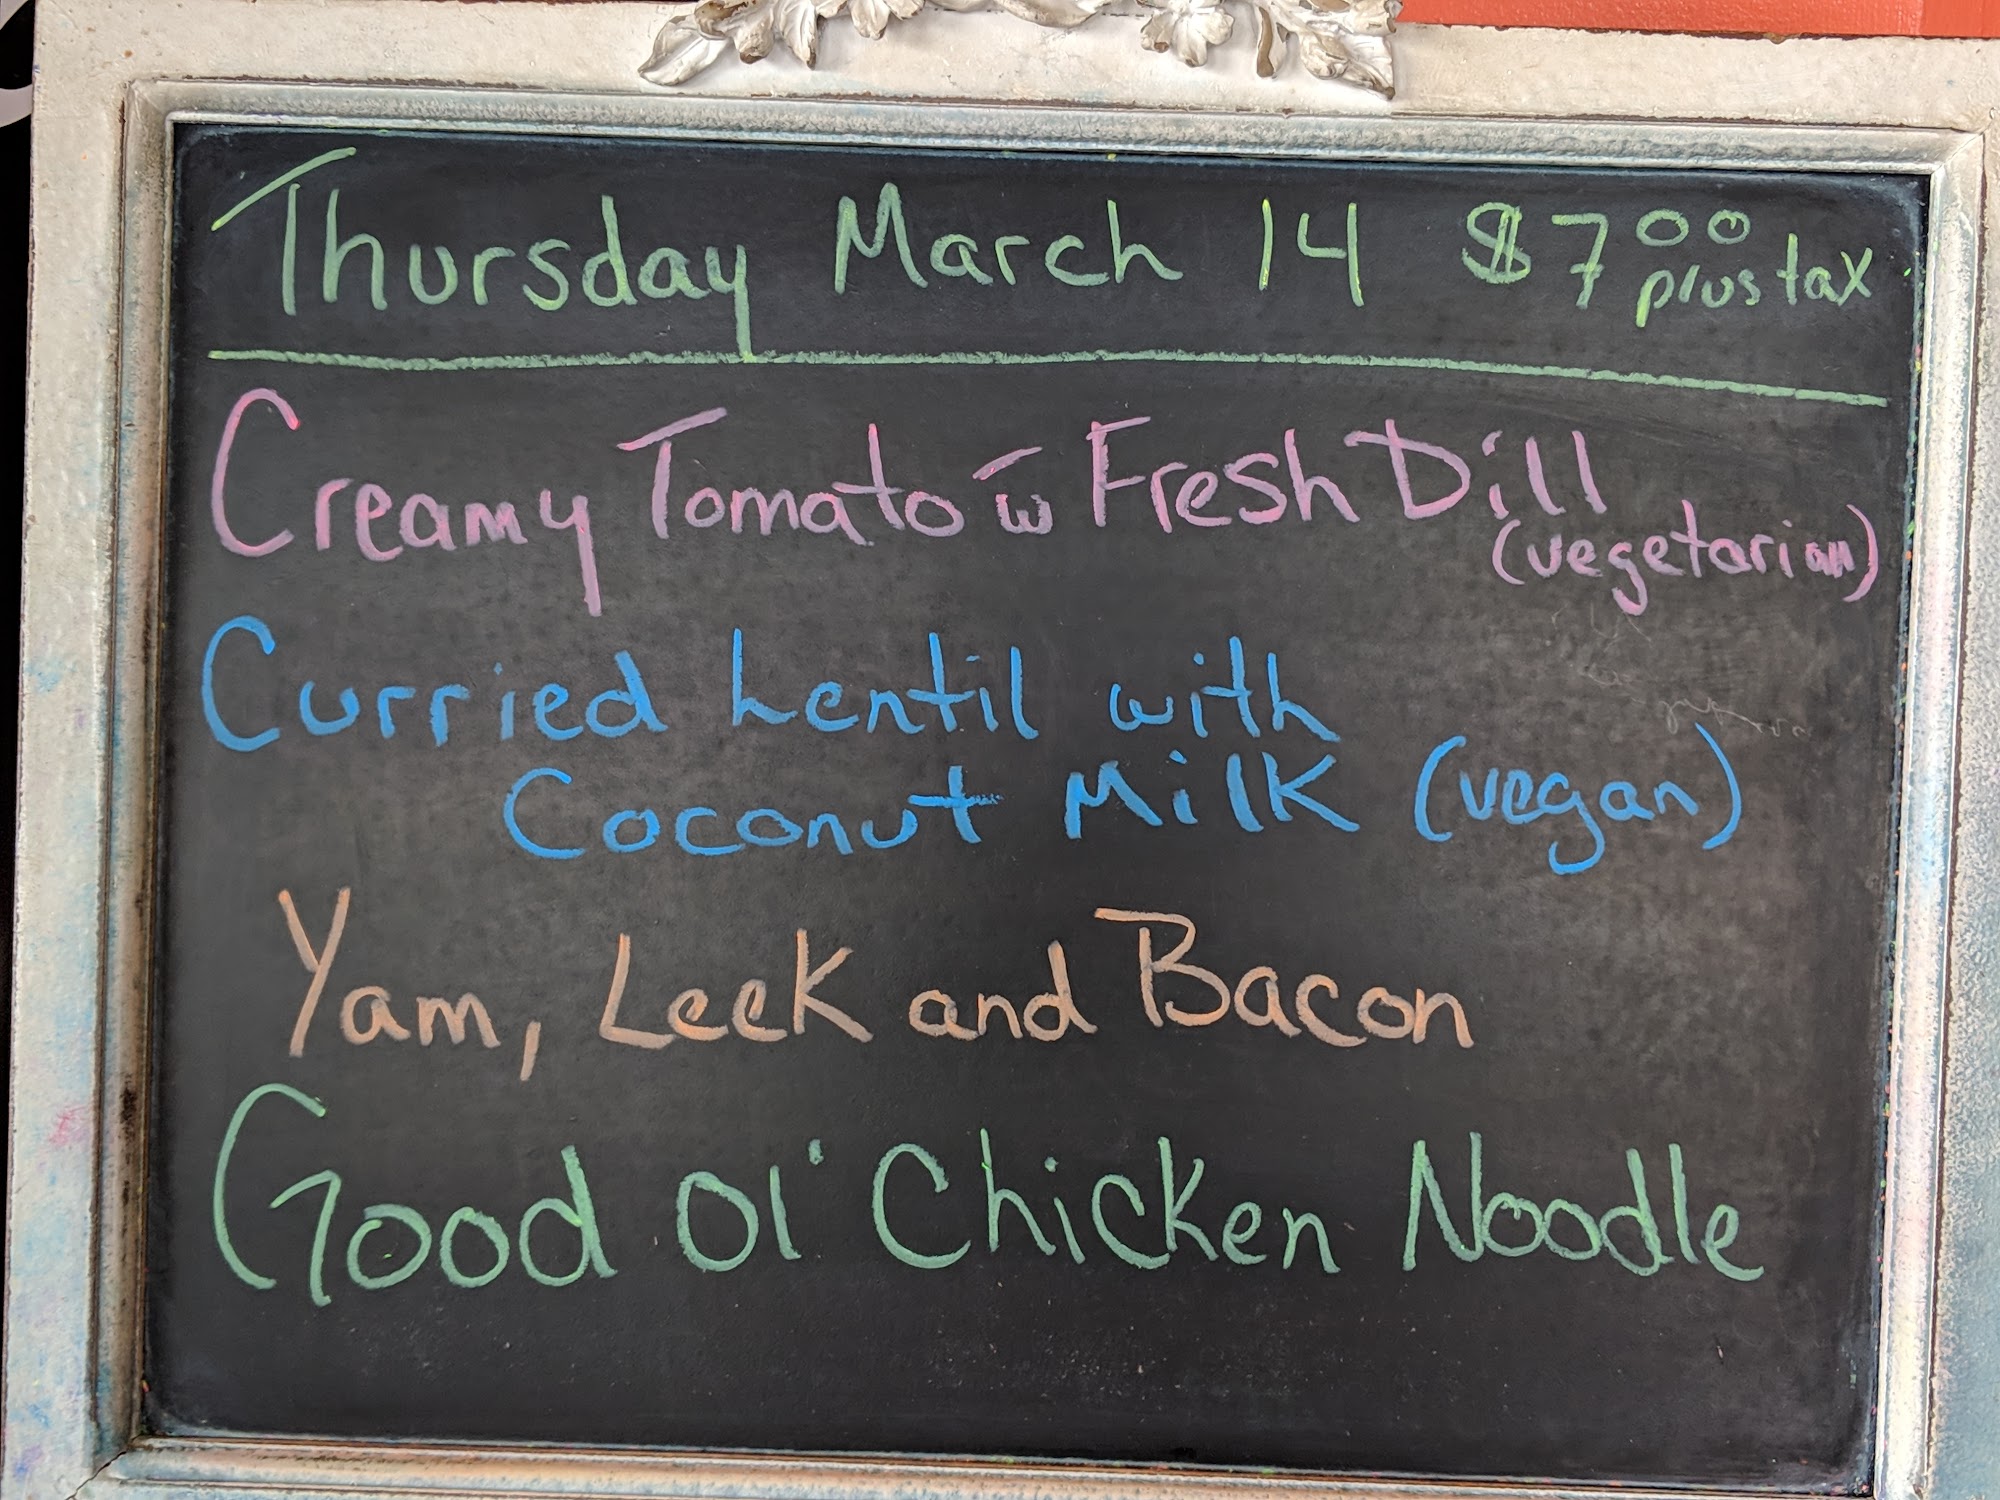 Thursday March 14 $7.00 plus tax
Creamy Tomato w̄ Fresh Dill
(vegetarian)
Curried Lentil with
Coconut Milk (vegan)
Yam, Leek and Bacon
Good Ol' Chicken Noodle